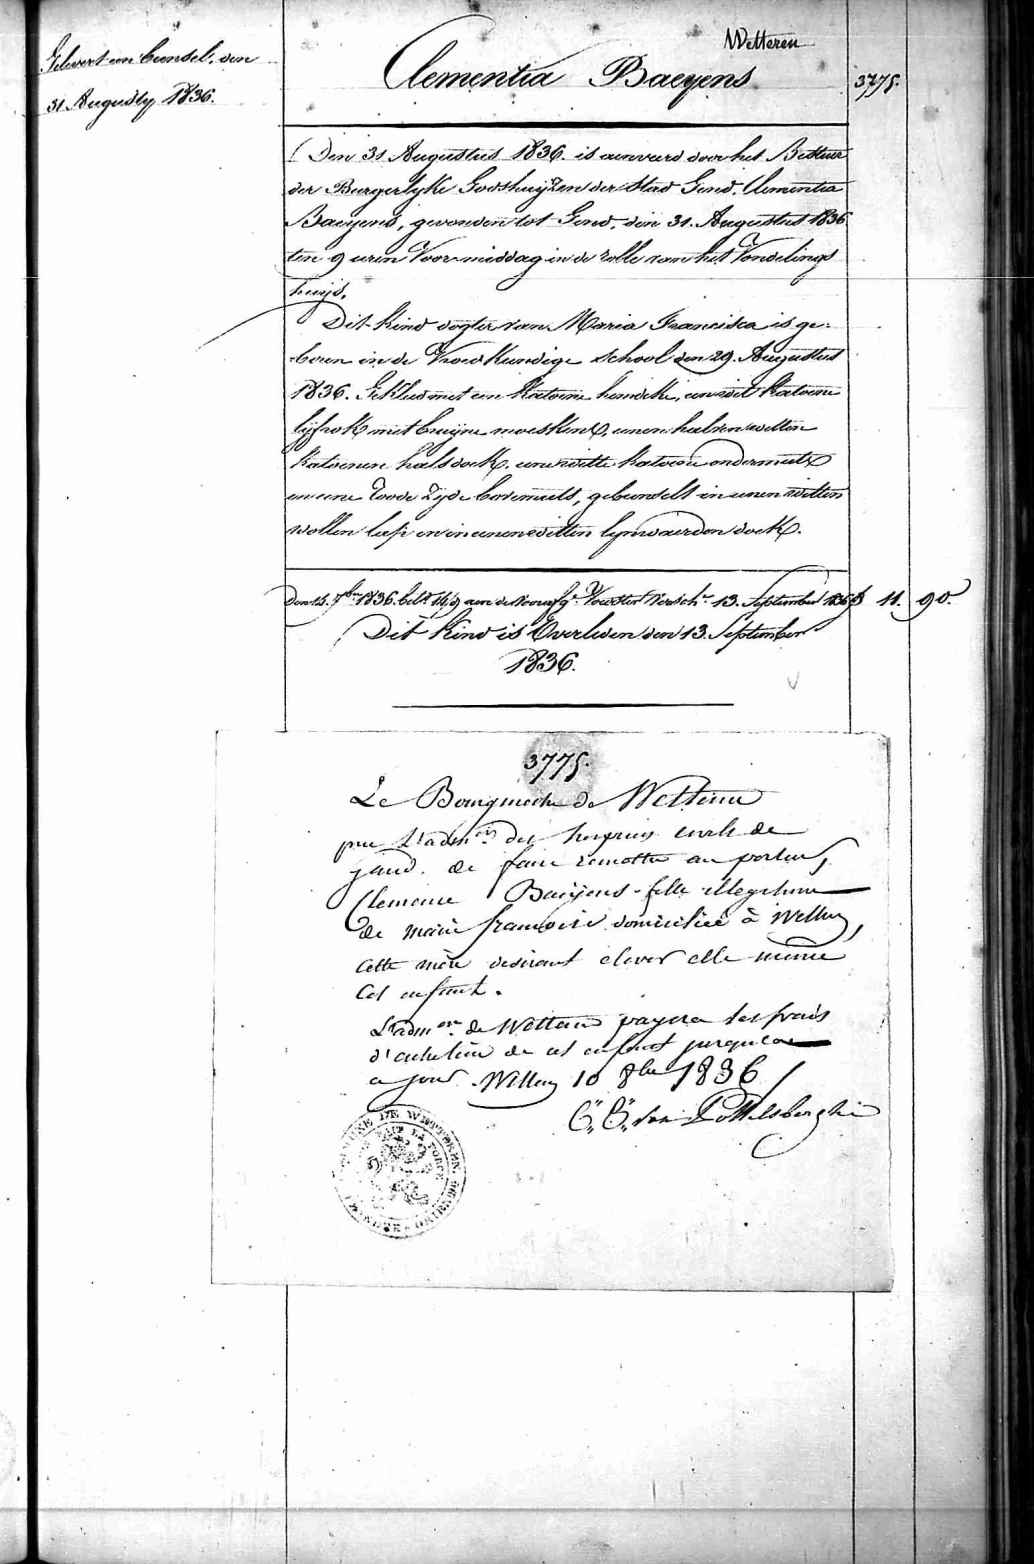 Gelevert een bundel, den
31 Augusty 1836.
Wetteren
Clementia Baeyens
3775.
Den 31 Augustus 1836. is aenveerd door het Bestuer
der Burgerlyke Godshuyzen der Stad Gend, Clementia
Baeyens, gevonden tot Gend, den 31. Augustus 1836
ten 9 uren Voormiddag in de rolle van het Vondelings
huys.
Dit Kind dogter van Maria Francisca is ge-
boren in de Vroedkundige school den 29. Augustus
1836. Gekleed met een Katoene hemdeke, een wit Katoene
lyfrok met bruyne moeskens, eenen halven witten
Katoenen halsdoek, eene witte katoene ondermuts
en eene roode zyde bovemuts, gebundelt in eenen witten
wollen lap en in eenen witten lynwaerden doek.
7ber 1836. aen de Voedster 13. September 1836 11. 90.
Dit Kind is Overleden den 13. September
1836.
3775.
Le Bourgmestre de Wetteren
prie L'admon des hospices civils de
gand. de faire remettre au porteur,
Clemence Baeyens fille illegitime
de marie françoise domiciliée à Wetteren,
cette mère desirant elever elle même
cet enfant.
L'admon de Wetteren payera les frais
d'entretien de cet enfant jusqu'a
ce jour. Wetteren 10 8bre 1836
Van Pottelsberghe
COMMUNE DE WETTEREN
FLANDRE ORIENTALE